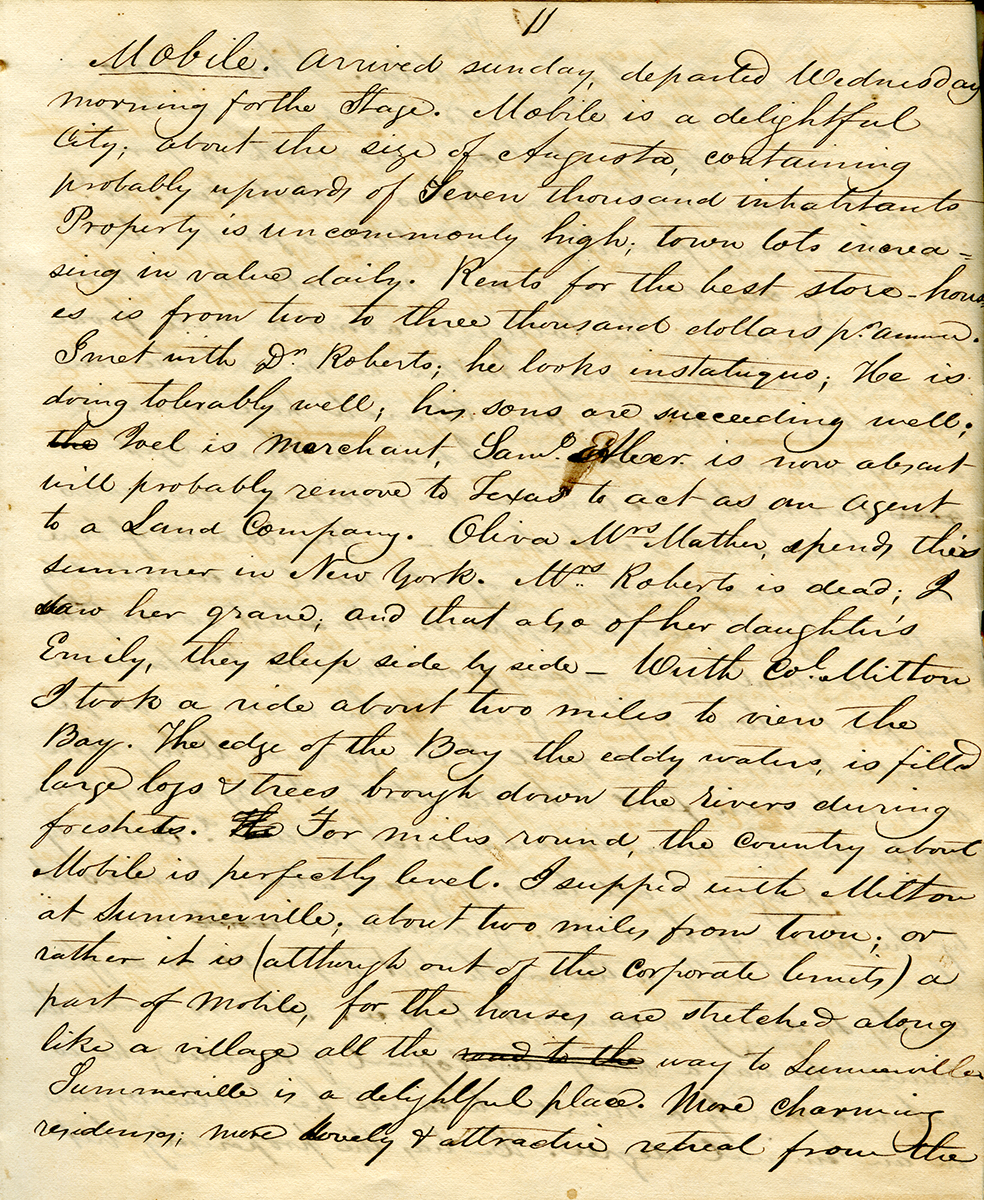 11
Mobile. Arrived sunday, departed Wednesday
morning for the Stage. Mobile is a delightful
City; about the size of Augusta, containing
probably upwards of Seven thousand inhabitants
Property is uncommonly high; town lots increa=
sing in value daily. Rents for the best store-hous
es is from two to three thousand dollars pr. annum.
I met with Dr. Roberts; he looks instatuquo; He is
doing tolerably well; his sons are succeeding well;
the Joel is merchant, Saml. is now absent
will probably remove to Texas to act as an agent
to a Land Company. Oliva Mrs Mather, spends this
summer in New York. Mrs. Roberts is dead; I
saw her grave; and that also of her daughter's
Emily, they sleep side by side - With Col. Mitton
I took a ride about two miles to view the
Bay. The edge of the Bay the eddy waters, is filled
large logs & trees brough down the rivers during
freshets. The For miles round, the country about
Mobile is perfectly level. I supped with Mitton
at Summerville; about two miles from town; or
rather it is (although out of the Corporate limits) a
part of Mobile, for the houses are stretched along
like a village all the road to the way to Summerville
Summerville is a delightful place. More charming
residenses; more lovely & attractive retreat from the